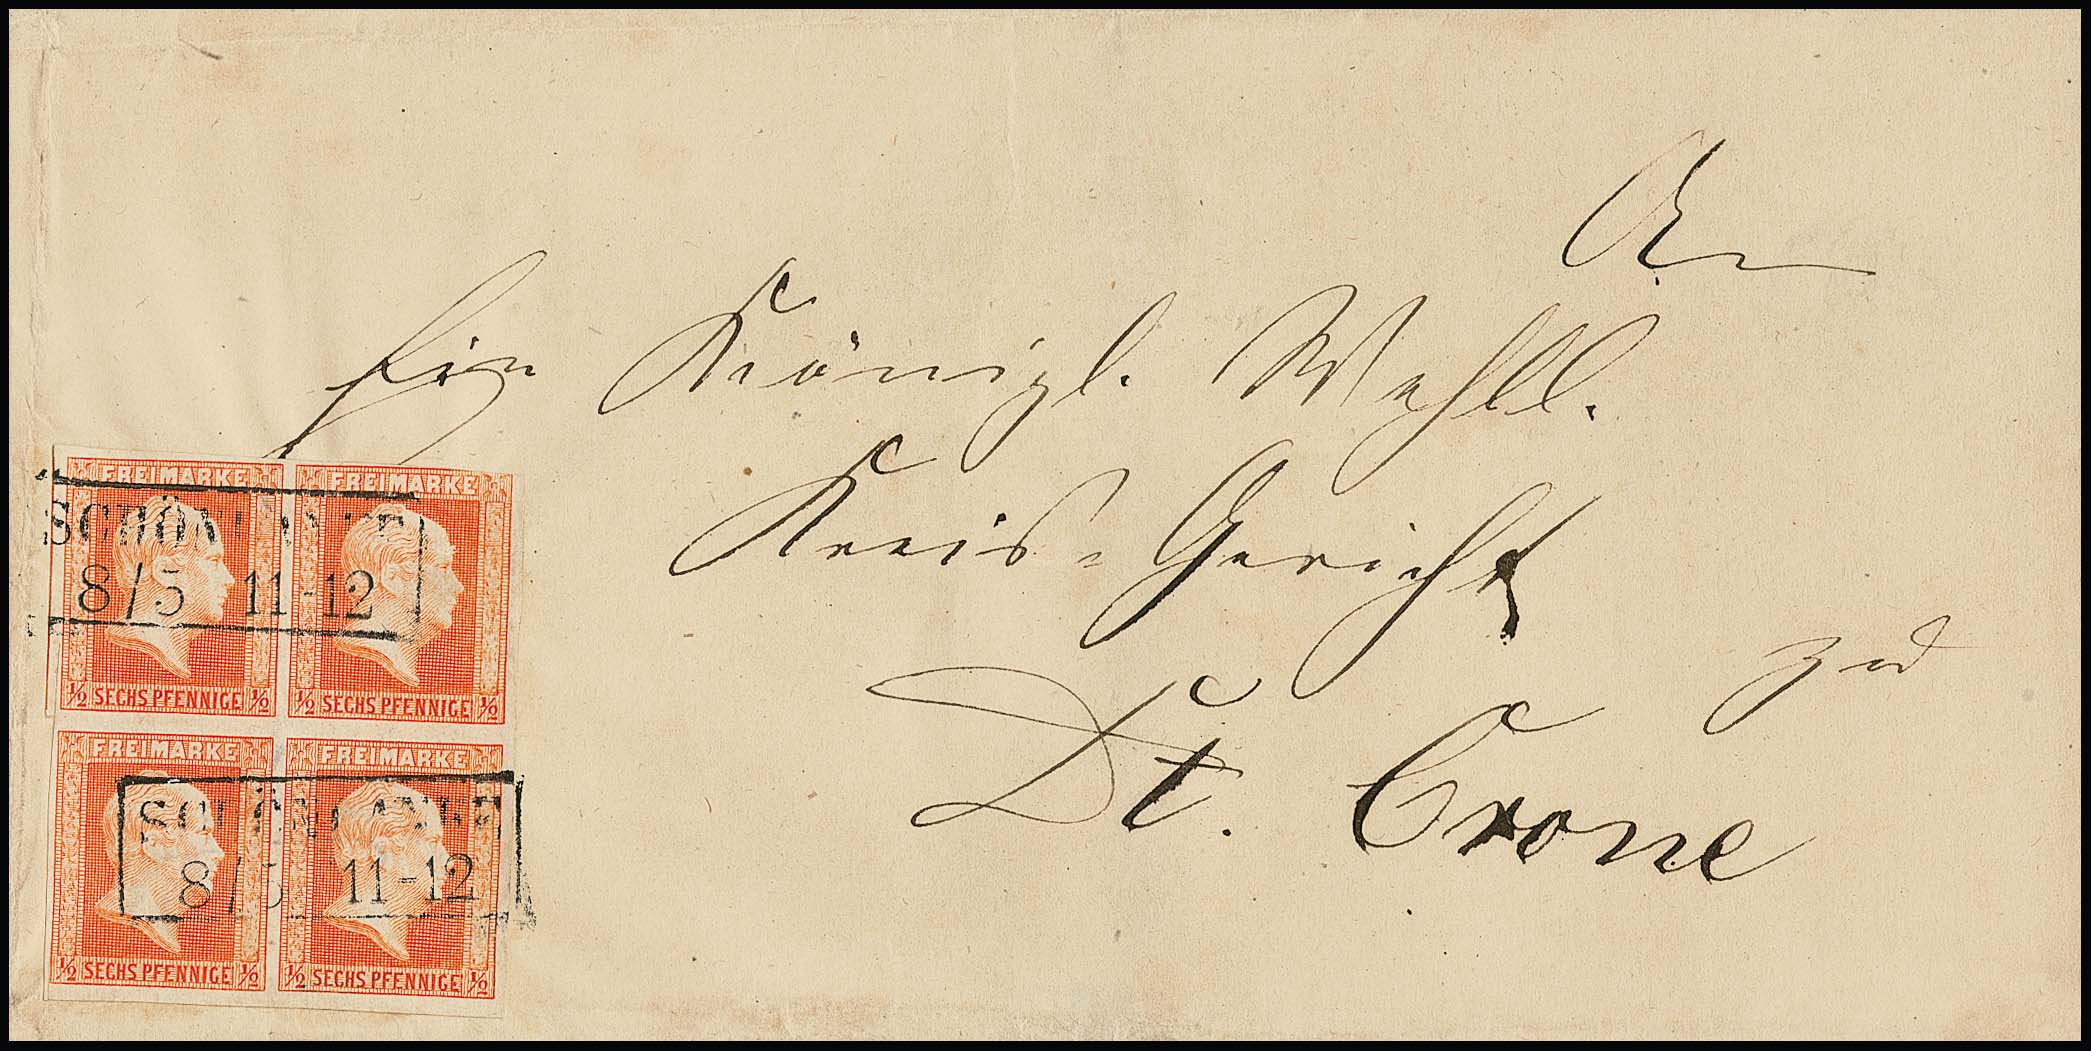 An
Ein Königl. Wohll.
Kreis-Gericht
zu
Dt. Crone
FREIMARKE FREIMARKE
SCHÖNLANKE
8/5 11-12
½ SECHS PFENNIGE ½ ½ SECHS PFENNIGE ½
FREIMARKE FREIMARKE
SCHÖNLANKE
8/5 11-12
½ SECHS PFENNIGE ½ ½ SECHS PFENNIGE ½